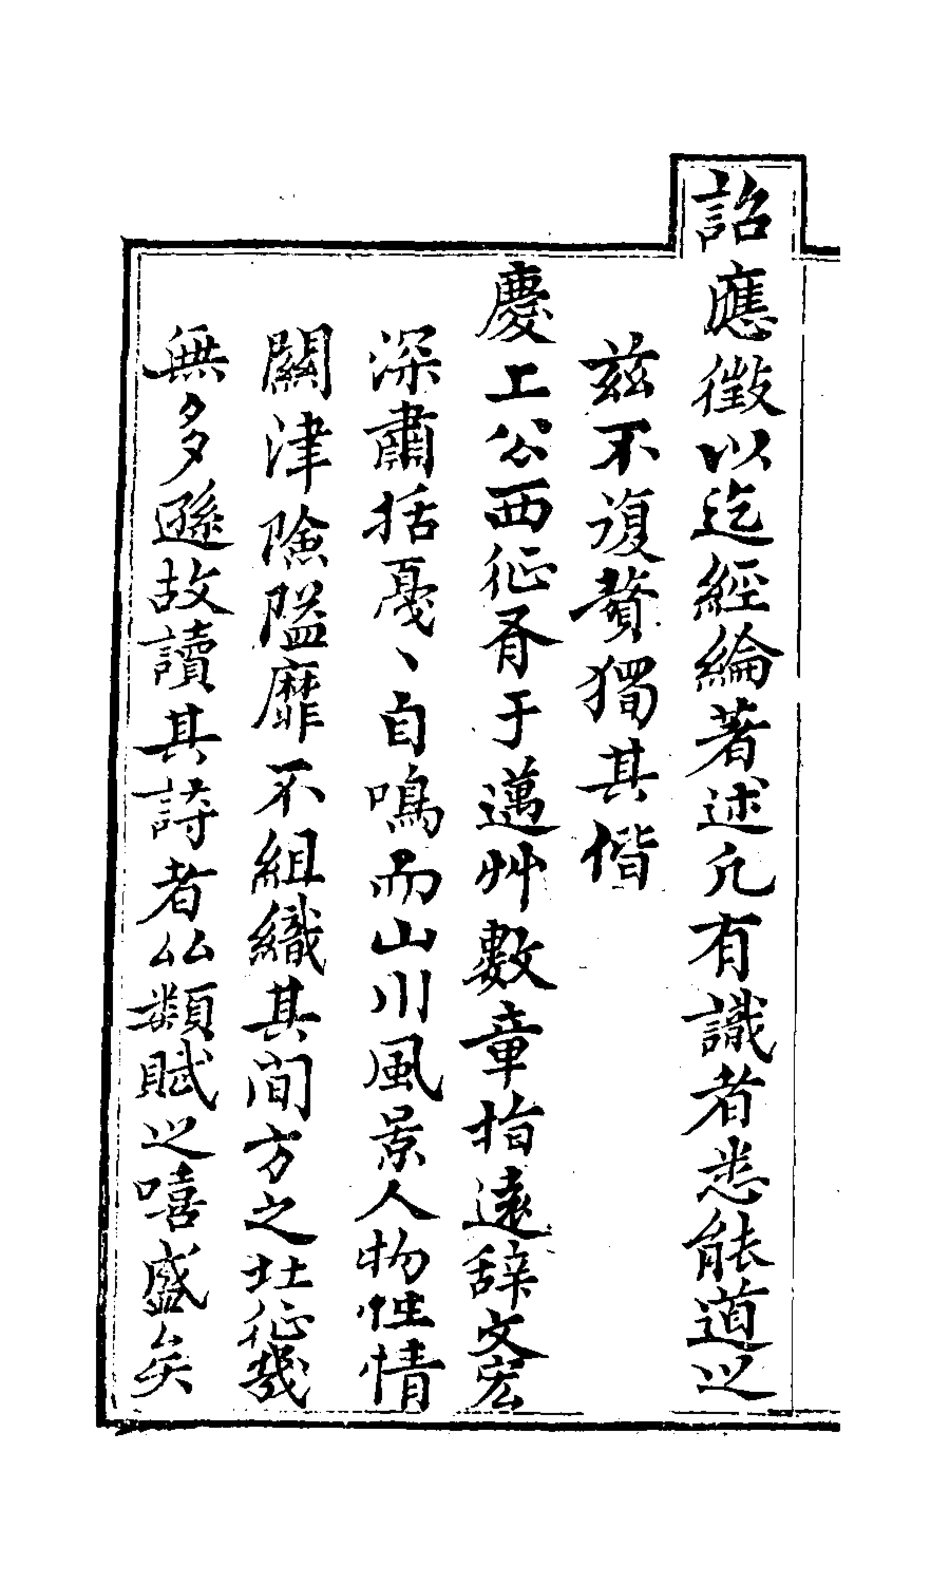 詔應徵以迄經綸著述凡有識者悉能道之
茲不復贅獨其偕
慶上公西征胥于邁艸數章指遠辭文宏
深肅括戞、自鳴而山川風景人物性情
關津險隘靡不組織其間方之壯征幾
無多遜故讀其詩者以類賦之嘻盛矣